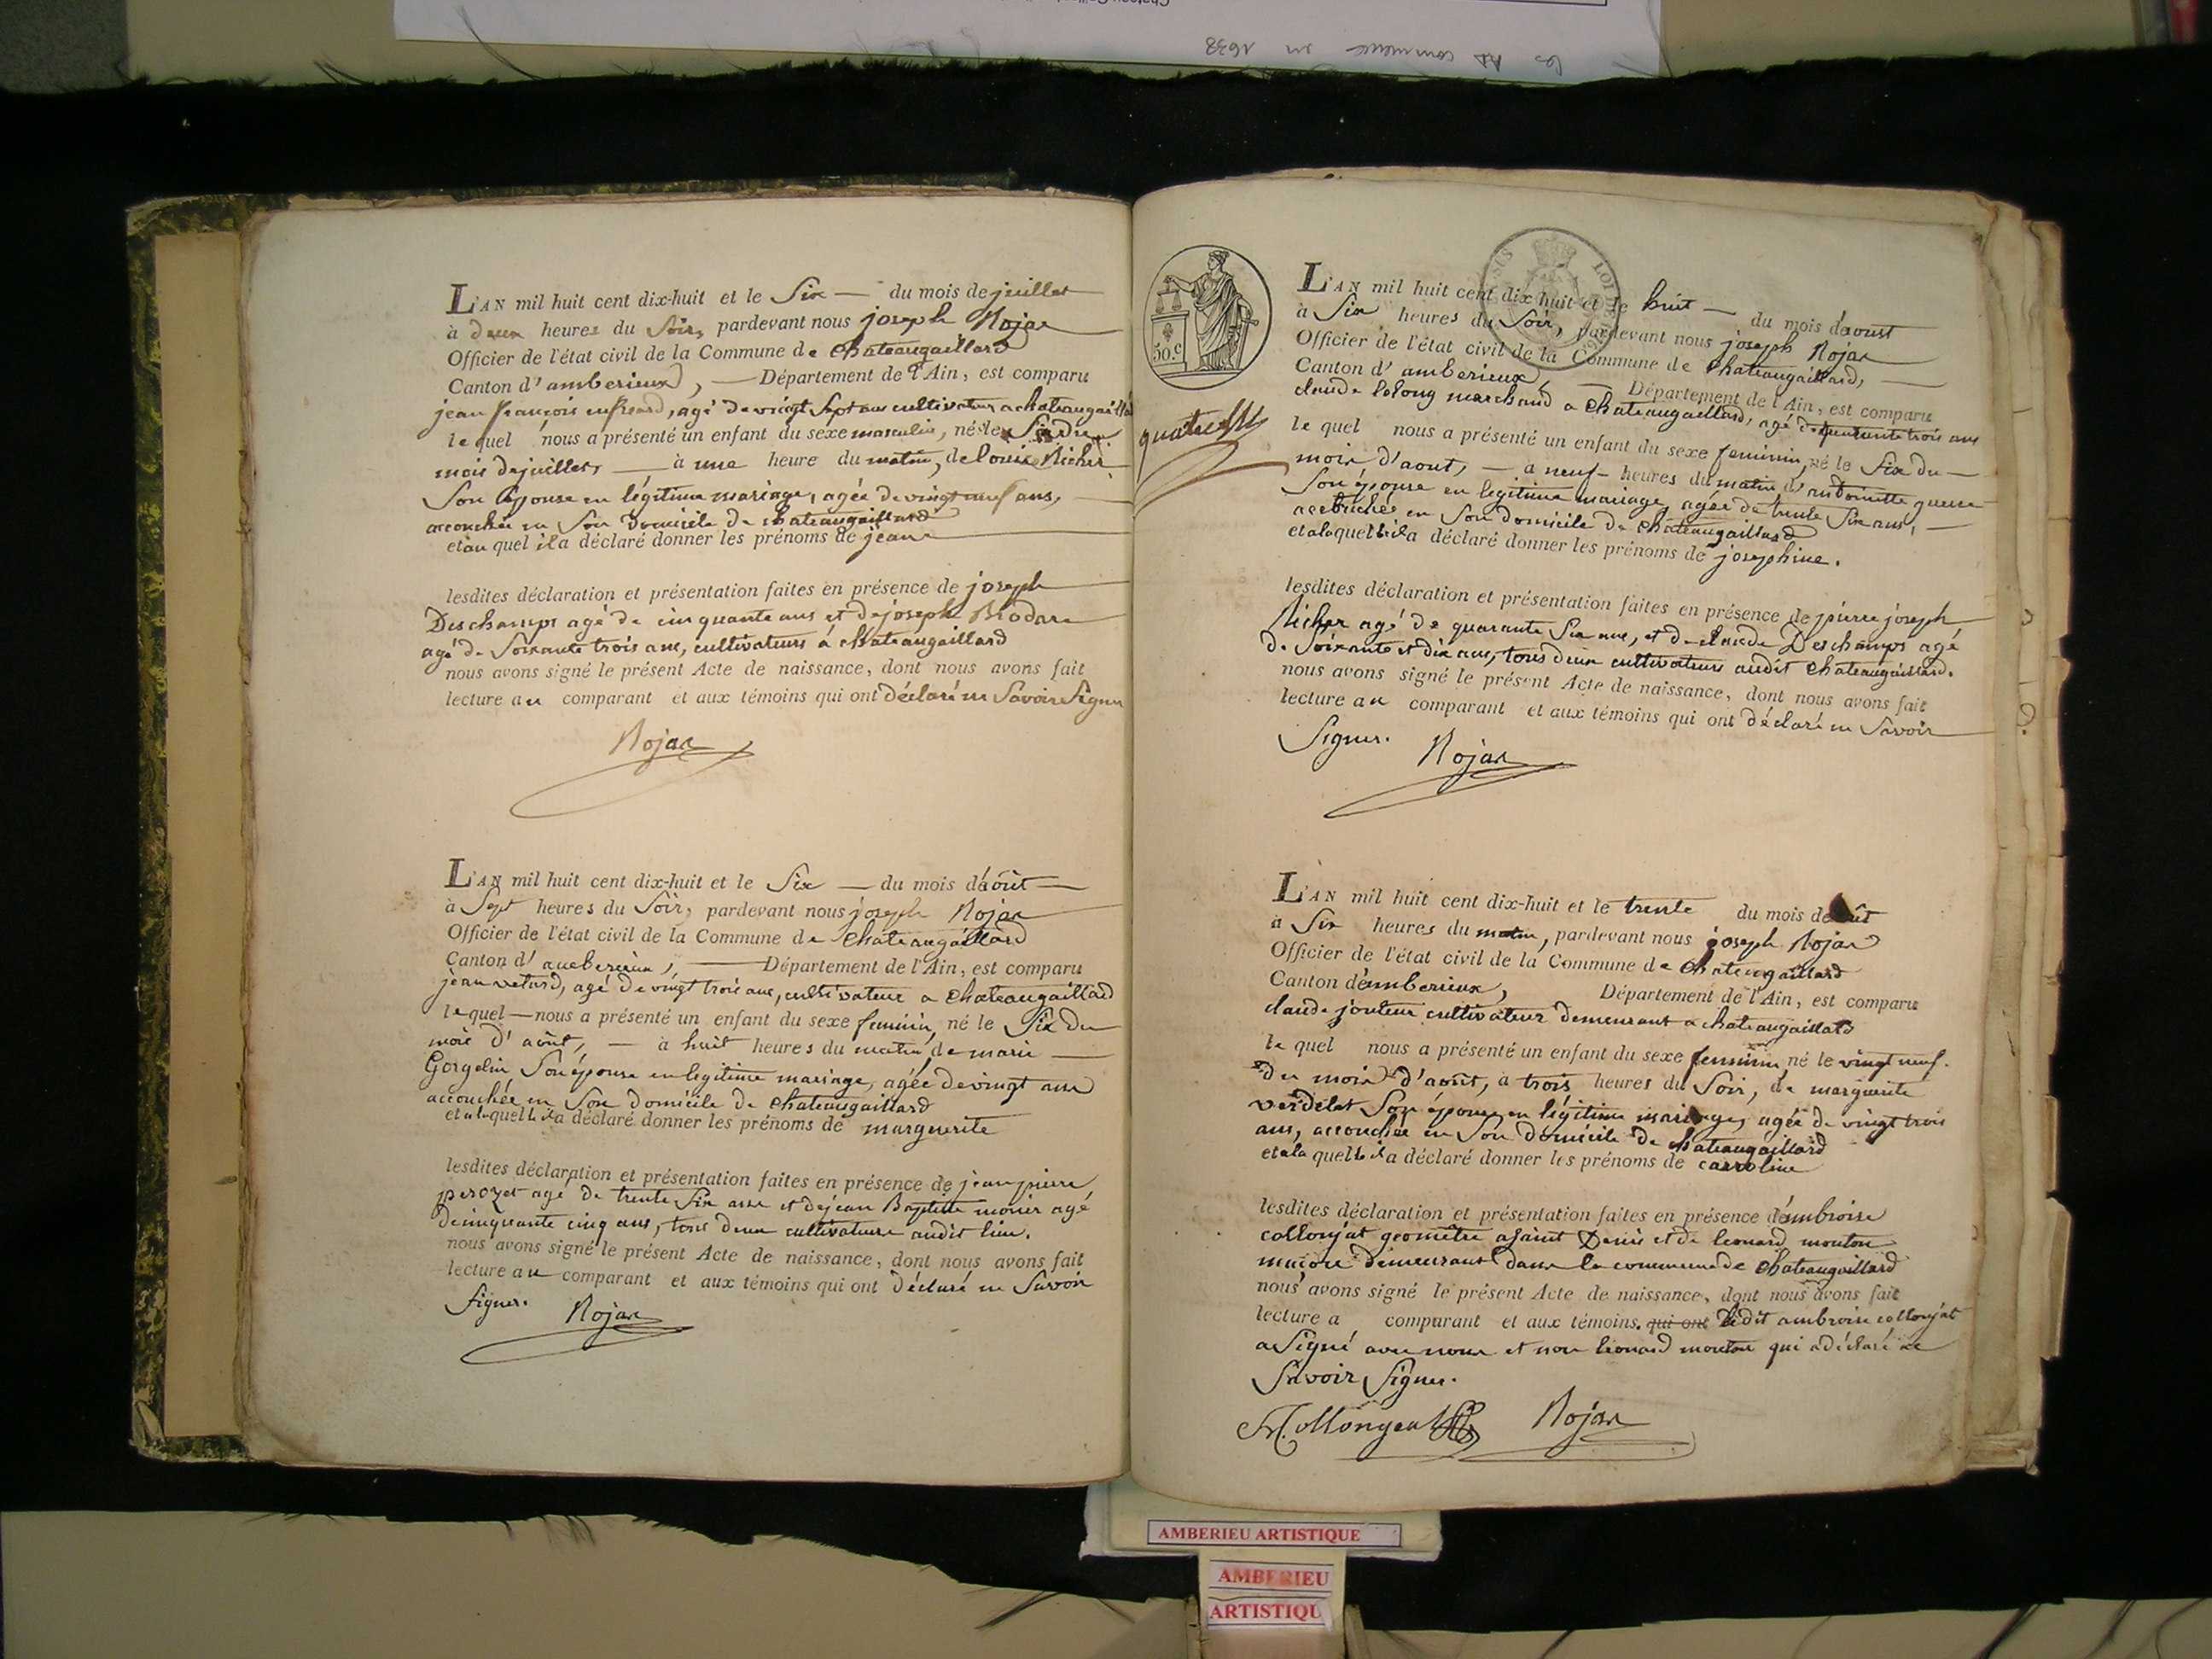 les AA commence en 1638
L'AN mil huit cent dix-huit et le Six — du mois de juillet
à deux heures du Soir, pardevant nous joseph Rojas
Officier de l'état civil de la Commune de Chateaugaillard
Canton d'amberieux, — Département de l'Ain, est comparu
jean françois agé de vingt Sept ans cultivateur a chateaugaillard
le quel nous a présenté un enfant du sexe masculin, né le Six du
mois de juillet, — à une heure du matin, de louise Richer
Son épouse en légitime mariage, agée de vingt neuf ans,
accouchée en Son domicile de chateaugaillard
et au quel il a déclaré donner les prénoms de jean
lesdites déclaration et présentation faites en présence de joseph
Deschamps agé de cinquante ans et de joseph Brodare
agé de Soixante trois ans, cultivateurs à chateaugaillard
nous avons signé le présent Acte de naissance, dont nous avons fait
lecture au comparant et aux témoins qui ont déclaré ne Savoir Signer
Rojas
L'AN mil huit cent dix-huit et le Six — du mois d'août —
à Sept heures du Soir, pardevant nous joseph Rojas
Officier de l'état civil de la Commune de Chateaugaillard
Canton d'amberieux, — Département de l'Ain, est comparu
jean vetard, agé de vingt trois ans, cultivateur a Chateaugaillard
le quel — nous a présenté un enfant du sexe feminin, né le Six du
mois d'août, — à huit heures du matin, de marie —
Gorgelin Son épouse en legitime mariage, agée de vingt ans
accouchée en Son domicile de Chateaugaillard
et a laquelle il a déclaré donner les prénoms de marguerite
lesdites déclaration et présentation faites en présence de jean pierre
perozet agé de trente Six ans et de jean Baptiste monier agé
de cinquante cinq ans, tous deux cultivateurs audit lieu.
nous avons signé le présent Acte de naissance, dont nous avons fait
lecture au comparant et aux témoins qui ont déclaré ne Savoir
Signer. Rojas
50.c
quatre
L'AN mil huit cent dix-huit et le huit — du mois d'aoust
à Six heures du Soir, pardevant nous joseph Rojas
Officier de l'état civil de la Commune de Chateaugaillard, —
Canton d'amberieux, — Département de l'Ain, est comparu
claude lolong marchand a Chateaugaillard, agé de quarante trois ans
le quel nous a présenté un enfant du sexe feminin, né le Six du —
mois d'aout, — a neuf heures du matin, d'andoinette
Son épouse en legitime mariage, agée de trente Six ans, —
accouchée en Son domicile de Chateaugaillard
et a laquelle il a déclaré donner les prénoms de josephine.
lesdites déclaration et présentation faites en présence de pierre joseph
Richer agé de quarante Six ans, et de claude Deschamps agé
de Soixante et dix ans, tous deux cultivateurs audit Chateaugaillard.
nous avons signé le présent Acte de naissance, dont nous avons fait
lecture au comparant et aux témoins qui ont déclaré ne Savoir
Signer. Rojas
L'AN mil huit cent dix-huit et le trente du mois de août
à Six heures du matin, pardevant nous joseph Rojas
Officier de l'état civil de la Commune de Chateaugaillard
Canton d'amberieux, Département de l'Ain, est comparu
claude jouteur cultivateur demeurant a chateaugaillard
le quel nous a présenté un enfant du sexe feminin, né le vingt neuf.
du mois d'août, à trois heures du Soir, de marguerite
verdelet Son épouse en légitime mariage, agée de vingt trois
ans, accouchée en Son domicile de chateaugaillard
et a la quelle il a déclaré donner les prénoms de carroline
lesdites déclaration et présentation faites en présence d'ambroise
collonjat geometre a Saint Denis et de leonard mouton
maçon demeurant dans la commune de Chateaugaillard
nous avons signé le présent Acte de naissance, dont nous avons fait
lecture a comparant et aux témoins. qui ont ledit ambroise collonjat
a Signé avec nous et non leonard mouton qui a déclaré ne
Savoir Signer.
Collongeat Rojas
AMBERIEU ARTISTIQUE
AMBERIEU
ARTISTIQU